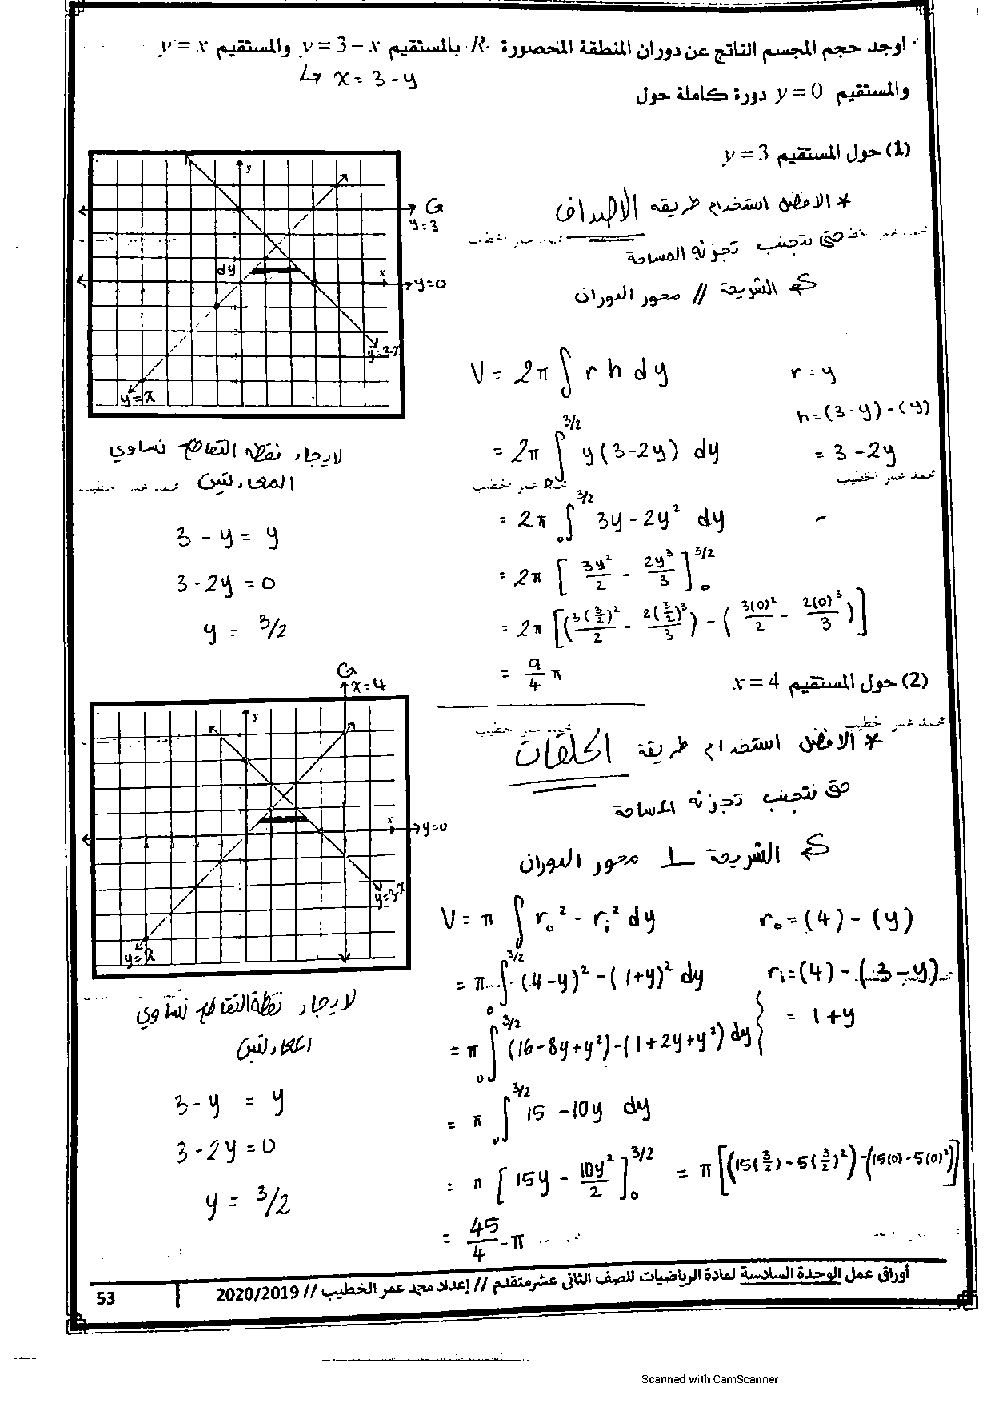 اوجد حجم المجسم الناتج عن دوران المنطقة المحصورة R بالمستقيم y = 3 − x والمستقيم y = x
↳ x = 3 - y
والمستقيم y = 0 دورة كاملة حول
(1) حول المستقيم y = 3
* الافضل استخدام طريقه الأصداف
حتى نتجنب تجزئه المساحة
الشريحة // محور الدوران
y
y=3
dy
x
y=0
y=x
V = 2π ∫ r h dy
r = y
h = (3-y) - (y)
= 3 - 2y
= 2π ∫₀^{3/2} y(3-2y) dy
= 2π ∫₀^{3/2} 3y - 2y² dy
= 2π [ 3y²/2 - 2y³/3 ]₀^{3/2}
= 2π [(3(3/2)²/2 - 2(3/2)³/3) - (3(0)²/2 - 2(0)³/3)]
= 9/4 π
لايجاد نقطه التقاطع نساوي
المعادلتين
محمد عمر الخطيب
3 - y = y
3 - 2y = 0
y = 3/2
(2) حول المستقيم x = 4
* الافضل استخدام طريقة الحلقات
حتى نتجنب تجزئه المساحة
الشريحة ⊥ محور الدوران
x=4
y
x
y=0
y=3-x
y=x
V = π ∫ r₀² - rᵢ² dy
r₀ = (4) - (y)
rᵢ = (4) - (3 - y)
= 1 + y
= π ∫₀^{3/2} (4-y)² - (1+y)² dy
= π ∫₀^{3/2} (16-8y+y²) - (1+2y+y²) dy
= π ∫₀^{3/2} 15 - 10y dy
= π [ 15y - 10y²/2 ]₀^{3/2} = π [(15(3/2) - 5(3/2)²) - (15(0) - 5(0)²)]
= 45/4 π
لايجاد نقطة التقاطع نساوي
المعادلتين
3 - y = y
3 - 2y = 0
y = 3/2
أوراق عمل الوحدة السادسة لمادة الرياضيات للصف الثاني عشر متقدم // إعداد محمد عمر الخطيب // 2020/2019
53
Scanned with CamScanner